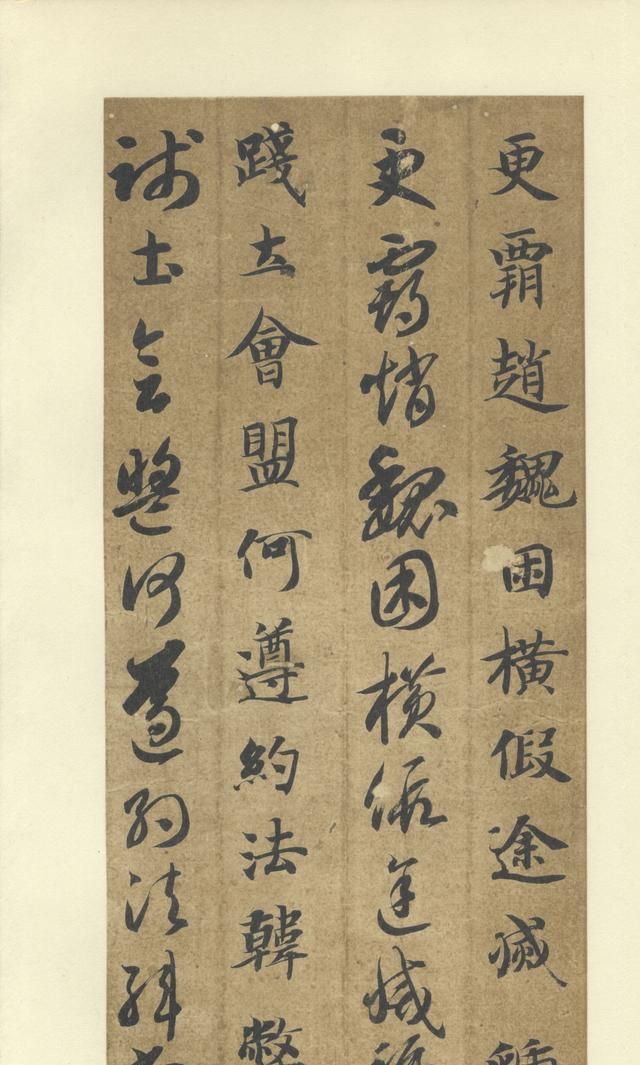 更覇趙魏困横假途滅
更覇趙魏困横假途滅
踐土會盟何遵約法韓
踐土會盟何遵約法韓